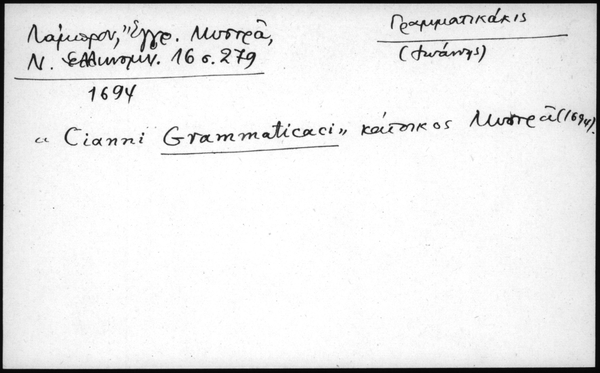 Λάμπρου, "Έγγρ. Μυστρᾶ,
Ν. Ἑλληνομν. 16 σ. 279
1694
Γραμματικάκις
(Ἰωάννης)
« Cianni Grammaticaci » κάτοικος Μυστρᾶ (1694).